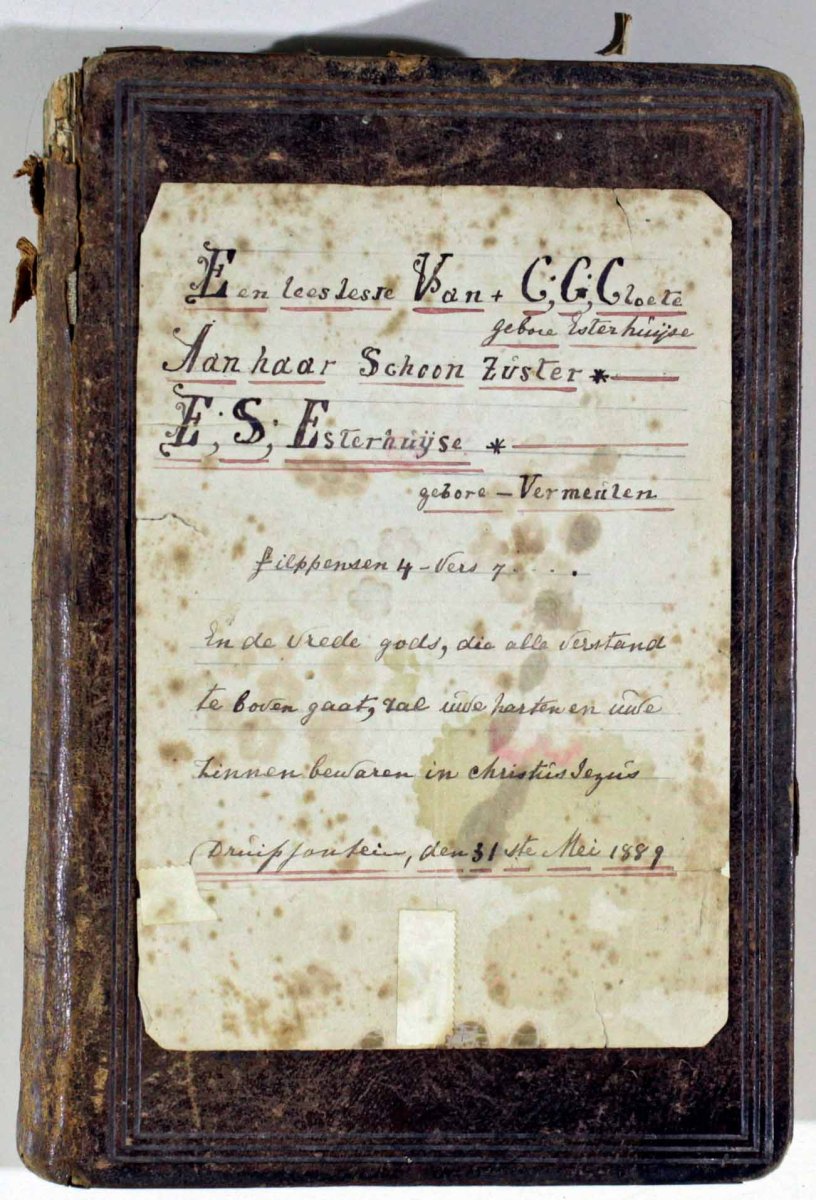 Een lees lesse Van + C; G; Cloete
gebore Esterhuijse
Aan haar Schoon Zúster *
E; S; Esterhuijse *
gebore - Vermeúlen
filppensen 4 - Vers 7 . . . .
En de vrede gods, die alle verstand
te boven gaat, zal úwe harten en úwe
zinnen bewaren in christús Jezús
Druipfontein, den 31 ste Mei 1889